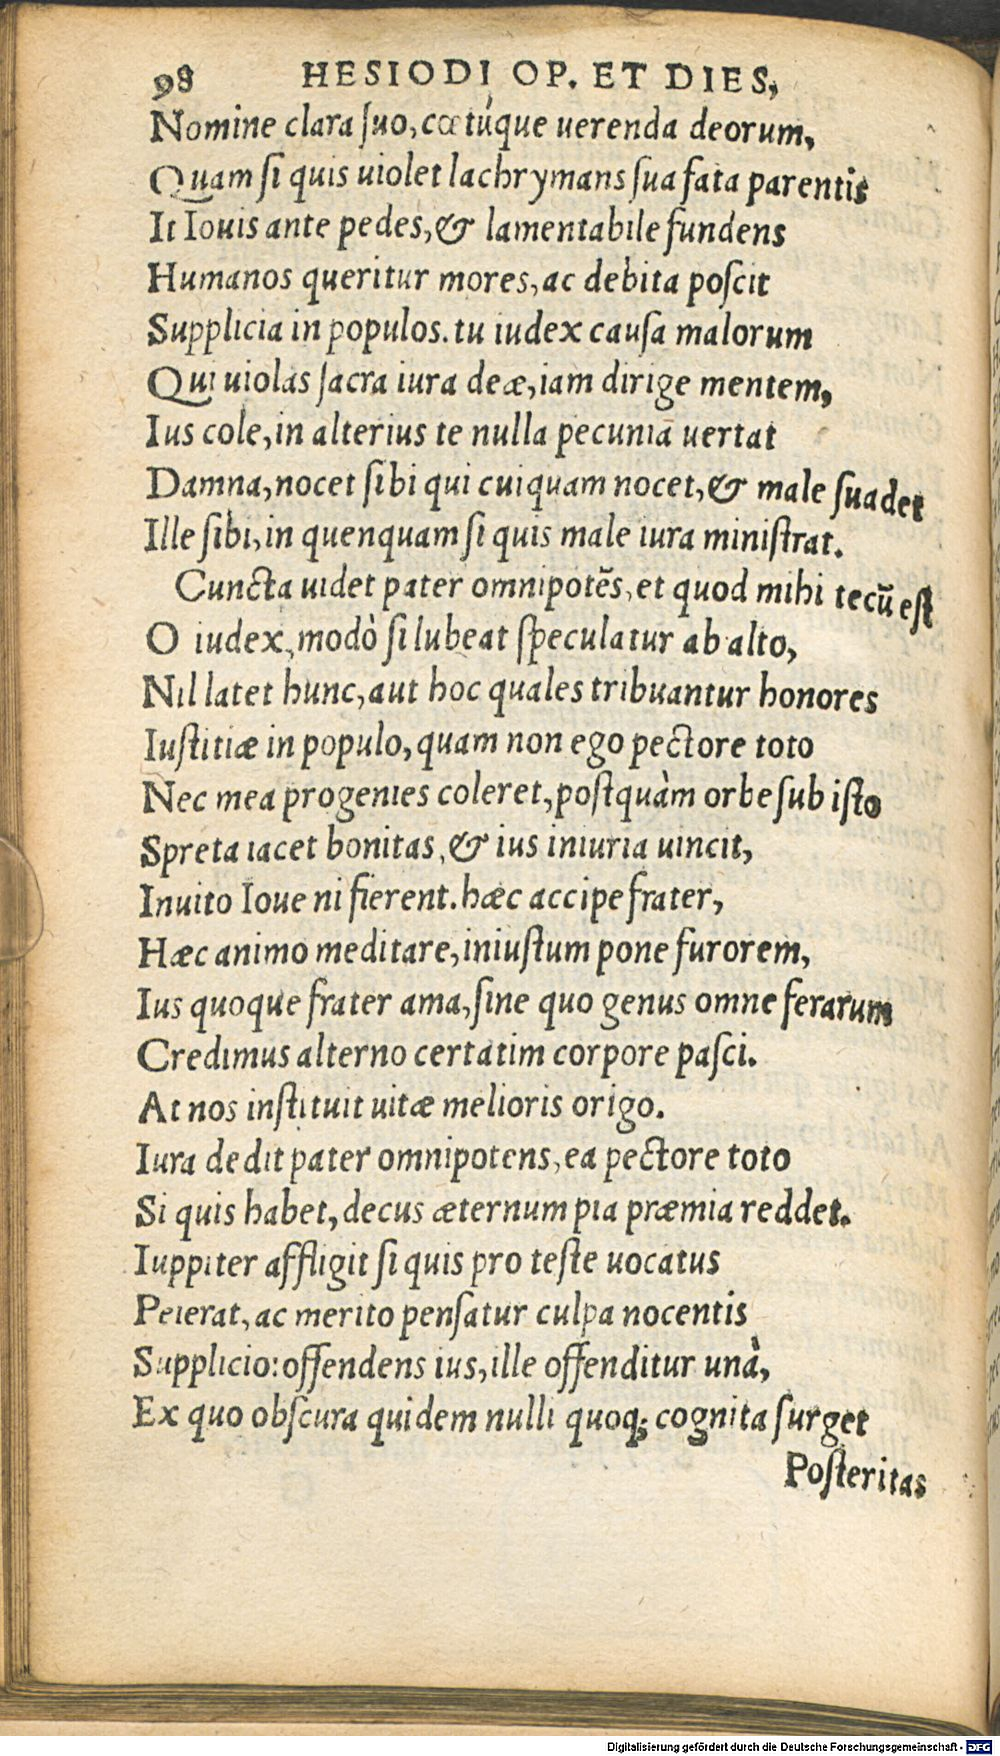 98 HESIODI OP. ET DIES,
Nomine clara ſuo, cœtúque uerenda deorum,
Quam ſi quis uiolet lachrymans ſua fata parentis
It Iouis ante pedes, & lamentabile fundens
Humanos queritur mores, ac debita poſcit
Supplicia in populos. tu iudex cauſa malorum
Qui uiolas ſacra iura deæ, iam dirige mentem,
Ius cole, in alterius te nulla pecunia uertat
Damna, nocet ſibi qui cuiquam nocet, & male ſuadet
Ille ſibi, in quenquam ſi quis male iura miniſtrat.
Cuncta uidet pater omnipotēs, et quod mihi tecū eſt
O iudex, modò ſi lubeat ſpeculatur ab alto,
Nil latet hunc, aut hoc quales tribuantur honores
Iuſtitiæ in populo, quam non ego pectore toto
Nec mea progenies coleret, poſtquàm orbe ſub iſto
Spreta iacet bonitas, & ius iniuria uincit,
Inuito Ioue ni fierent. hæc accipe frater,
Hæc animo meditare, iniuſtum pone furorem,
Ius quoque frater ama, ſine quo genus omne ferarum
Credimus alterno certatim corpore paſci.
At nos inſtituit uitæ melioris origo.
Iura dedit pater omnipotens, ea pectore toto
Si quis habet, decus æternum pia præmia reddet.
Iuppiter affligit ſi quis pro teſte uocatus
Peierat, ac merito penſatur culpa nocentis
Supplicio: offendens ius, ille offenditur unà,
Ex quo obſcura quidem nulli quoq; cognita ſurget
Poſteritas
Digitalisierung gefördert durch die Deutsche Forschungsgemeinschaft - DFG